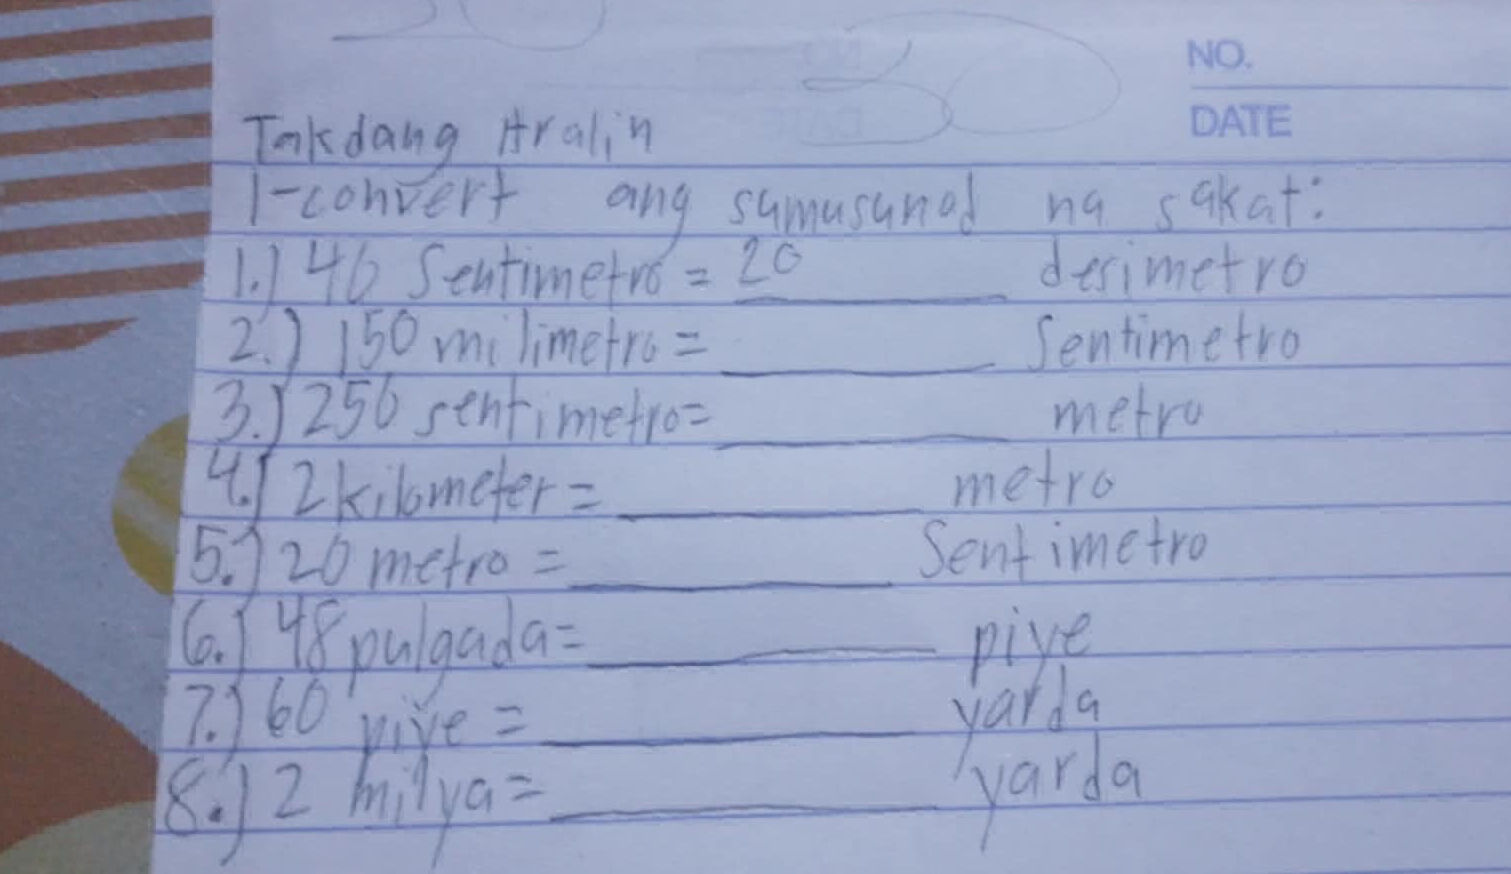 NO.
DATE
Takdang Aralin
I-convert ang sumusunod na sukat:
1.) 40 Sentimetro = 20 desimetro
2.) 150 milimetro = Sentimetro
3.) 250 sentimetro= metro
4.) 2 kilometer = metro
5.) 20 metro = Sentimetro
6.) 48 pulgada= piye
7.) 60 piye = yarda
8.) 2 milya= yarda